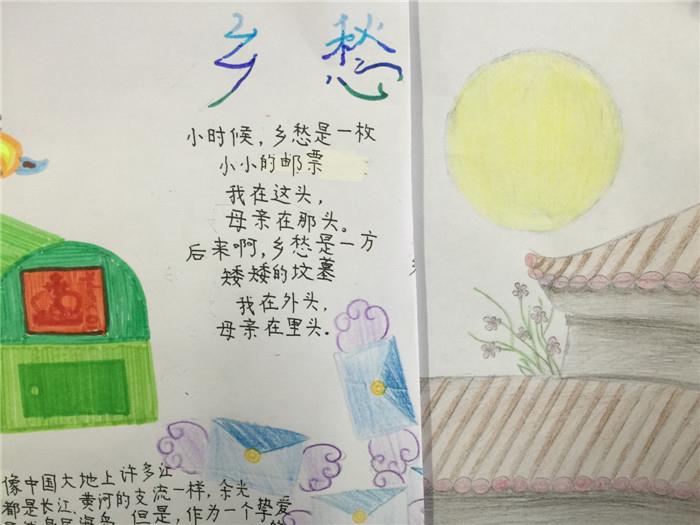 乡愁
小时候，乡愁是一枚
小小的邮票
我在这头，
母亲在那头。
后来啊，乡愁是一方
矮矮的坟墓
我在外头，
母亲在里头.
像中国大地上许多江
都是长江、黄河的支流一样，余光
但是，作为一个挚爱